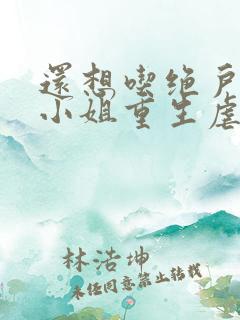 還想喫绝户
小姐重生虐
林浩坤
未经同意禁止转载